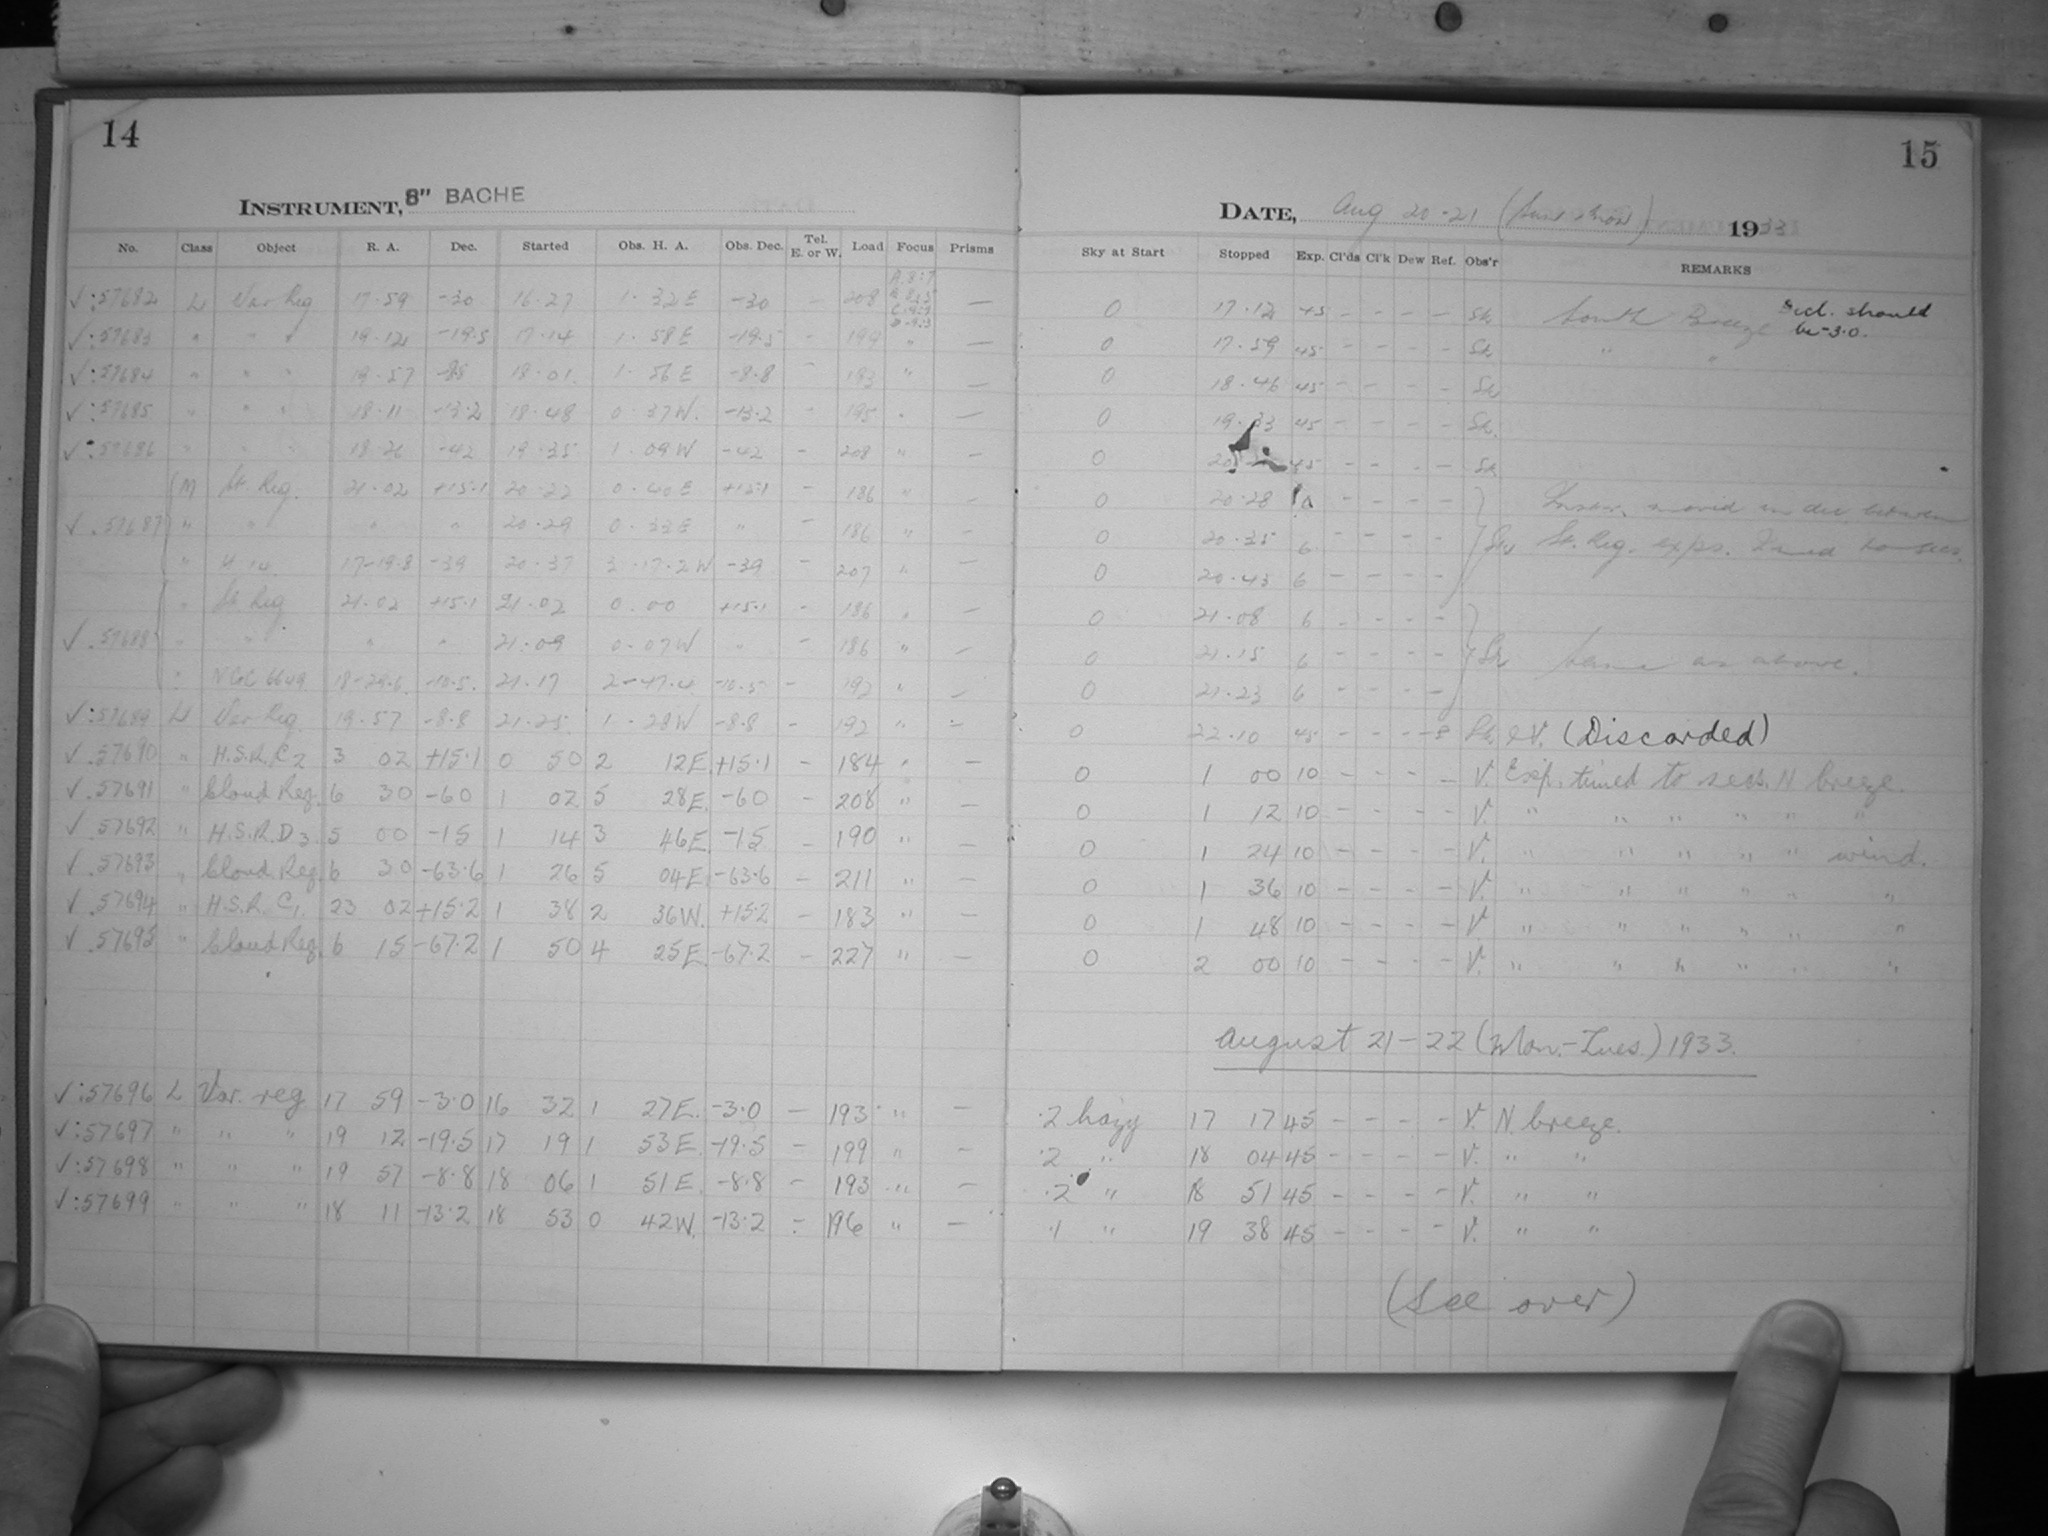 14
INSTRUMENT, 8" BACHE
No. Class Object R. A. Dec. Started Obs. H. A. Obs. Dec. Tel. E. or W. Load Focus Prisms
✓:57682 L Var Reg 17·59 -30 16·27 1·32E -30 - 208 —
✓:57683 " " " 19·12 -19·5 17·14 1·58E -19·5 - 199 " —
✓:57684 " " " 19·57 18·01 1·56E -8·8 - 193 " —
✓:57685 " " " 18·11 -13·2 18·48 0·37W. -13·2 - 195 " —
✓:57686 " " " 18·26 -42 19·35 1·09W -42 - 208 " —
M St. Reg. 21·02 +15·1 20·22 0·40E +15·1 - 186 " —
✓.57687 " " " " 20·29 0·33E " - 186 " —
" 17-19·8 -39 20·37 3·17·2W -39 - 207 " —
" St. Reg 21·02 +15·1 21·02 0·00 +15·1 - 186 " —
✓.57688 " " " " 21·09 0·07W " - 186 " —
" NGC 6649 18-29·6 -10·5 21·17 2-47·4 -10·5 - 192 " —
✓:57689 L Var Reg. 19·57 -8·8 21·25 1·28W -8·8 - 192 " —
✓.57690 " H.S.R.C2 3 02 +15·1 0 50 2 12E. +15·1 - 184 " —
✓.57691 " Cloud Reg. 6 30 -60 1 02 5 28E. -60 - 208 " —
✓.57692 " H.S.R.D3 5 00 -15 1 14 3 46E. -15 - 190 " —
✓.57693 " Cloud Reg. 6 30 -63·6 1 26 5 04E. -63·6 - 211 " —
✓.57694 " H.S.R.C1. 23 02 +15·2 1 38 2 36W. +15·2 - 183 " —
✓.57695 " Cloud Reg. 6 15 -67·2 1 50 4 25E. -67·2 - 227 " —
✓:57696 L Var. reg 17 59 -3·0 16 32 1 27E. -3·0 - 193 " —
✓:57697 " " " 19 12 -19·5 17 19 1 53E. -19·5 - 199 " —
✓:57698 " " " 19 57 -8·8 18 06 1 51E. -8·8 - 193 " —
✓:57699 " " " 18 11 -13·2 18 53 0 42W. -13·2 - 196 " —
15
DATE, Aug 20-21 (Sun & Mon) 1933
Sky at Start Stopped Exp. Cl'ds Cl'k Dew Ref. Obs'r REMARKS
0 17·12 45 - - - - Sh South Breeze Decl. should be -3·0.
0 17·59 45 - - - - Sh " "
0 18·46 45 - - - - Sh
0 19·33 45 - - - - Sh.
0 45 - - - - Sh
0 20·28 - - - - moved in dec. between
0 20·35 6 - - - - St. Reg. exps. Timed to secs.
0 20·43 6 - - - -
0 21·08 6 - - - -
0 21·15 6 - - - - Same as above.
0 21·23 6 - - - -
0 22·10 45 - - - & V. (Discarded)
0 1 00 10 - - - - V. Exp. timed to secs. N breeze.
0 1 12 10 - - - - V. " " " " " "
0 1 24 10 - - - - V. " " " " " wind.
0 1 36 10 - - - - V. " " " " " "
0 1 48 10 - - - - V " " " " " "
0 2 00 10 - - - - V. " " " " " "
August 21-22 (Mon.-Tues.) 1933.
·2 hazy 17 17 45 - - - - V. N breeze.
·2 " 18 04 45 - - - - V. " "
·2 " 18 51 45 - - - - V. " "
·1 " 19 38 45 - - - - V. " "
(See over)